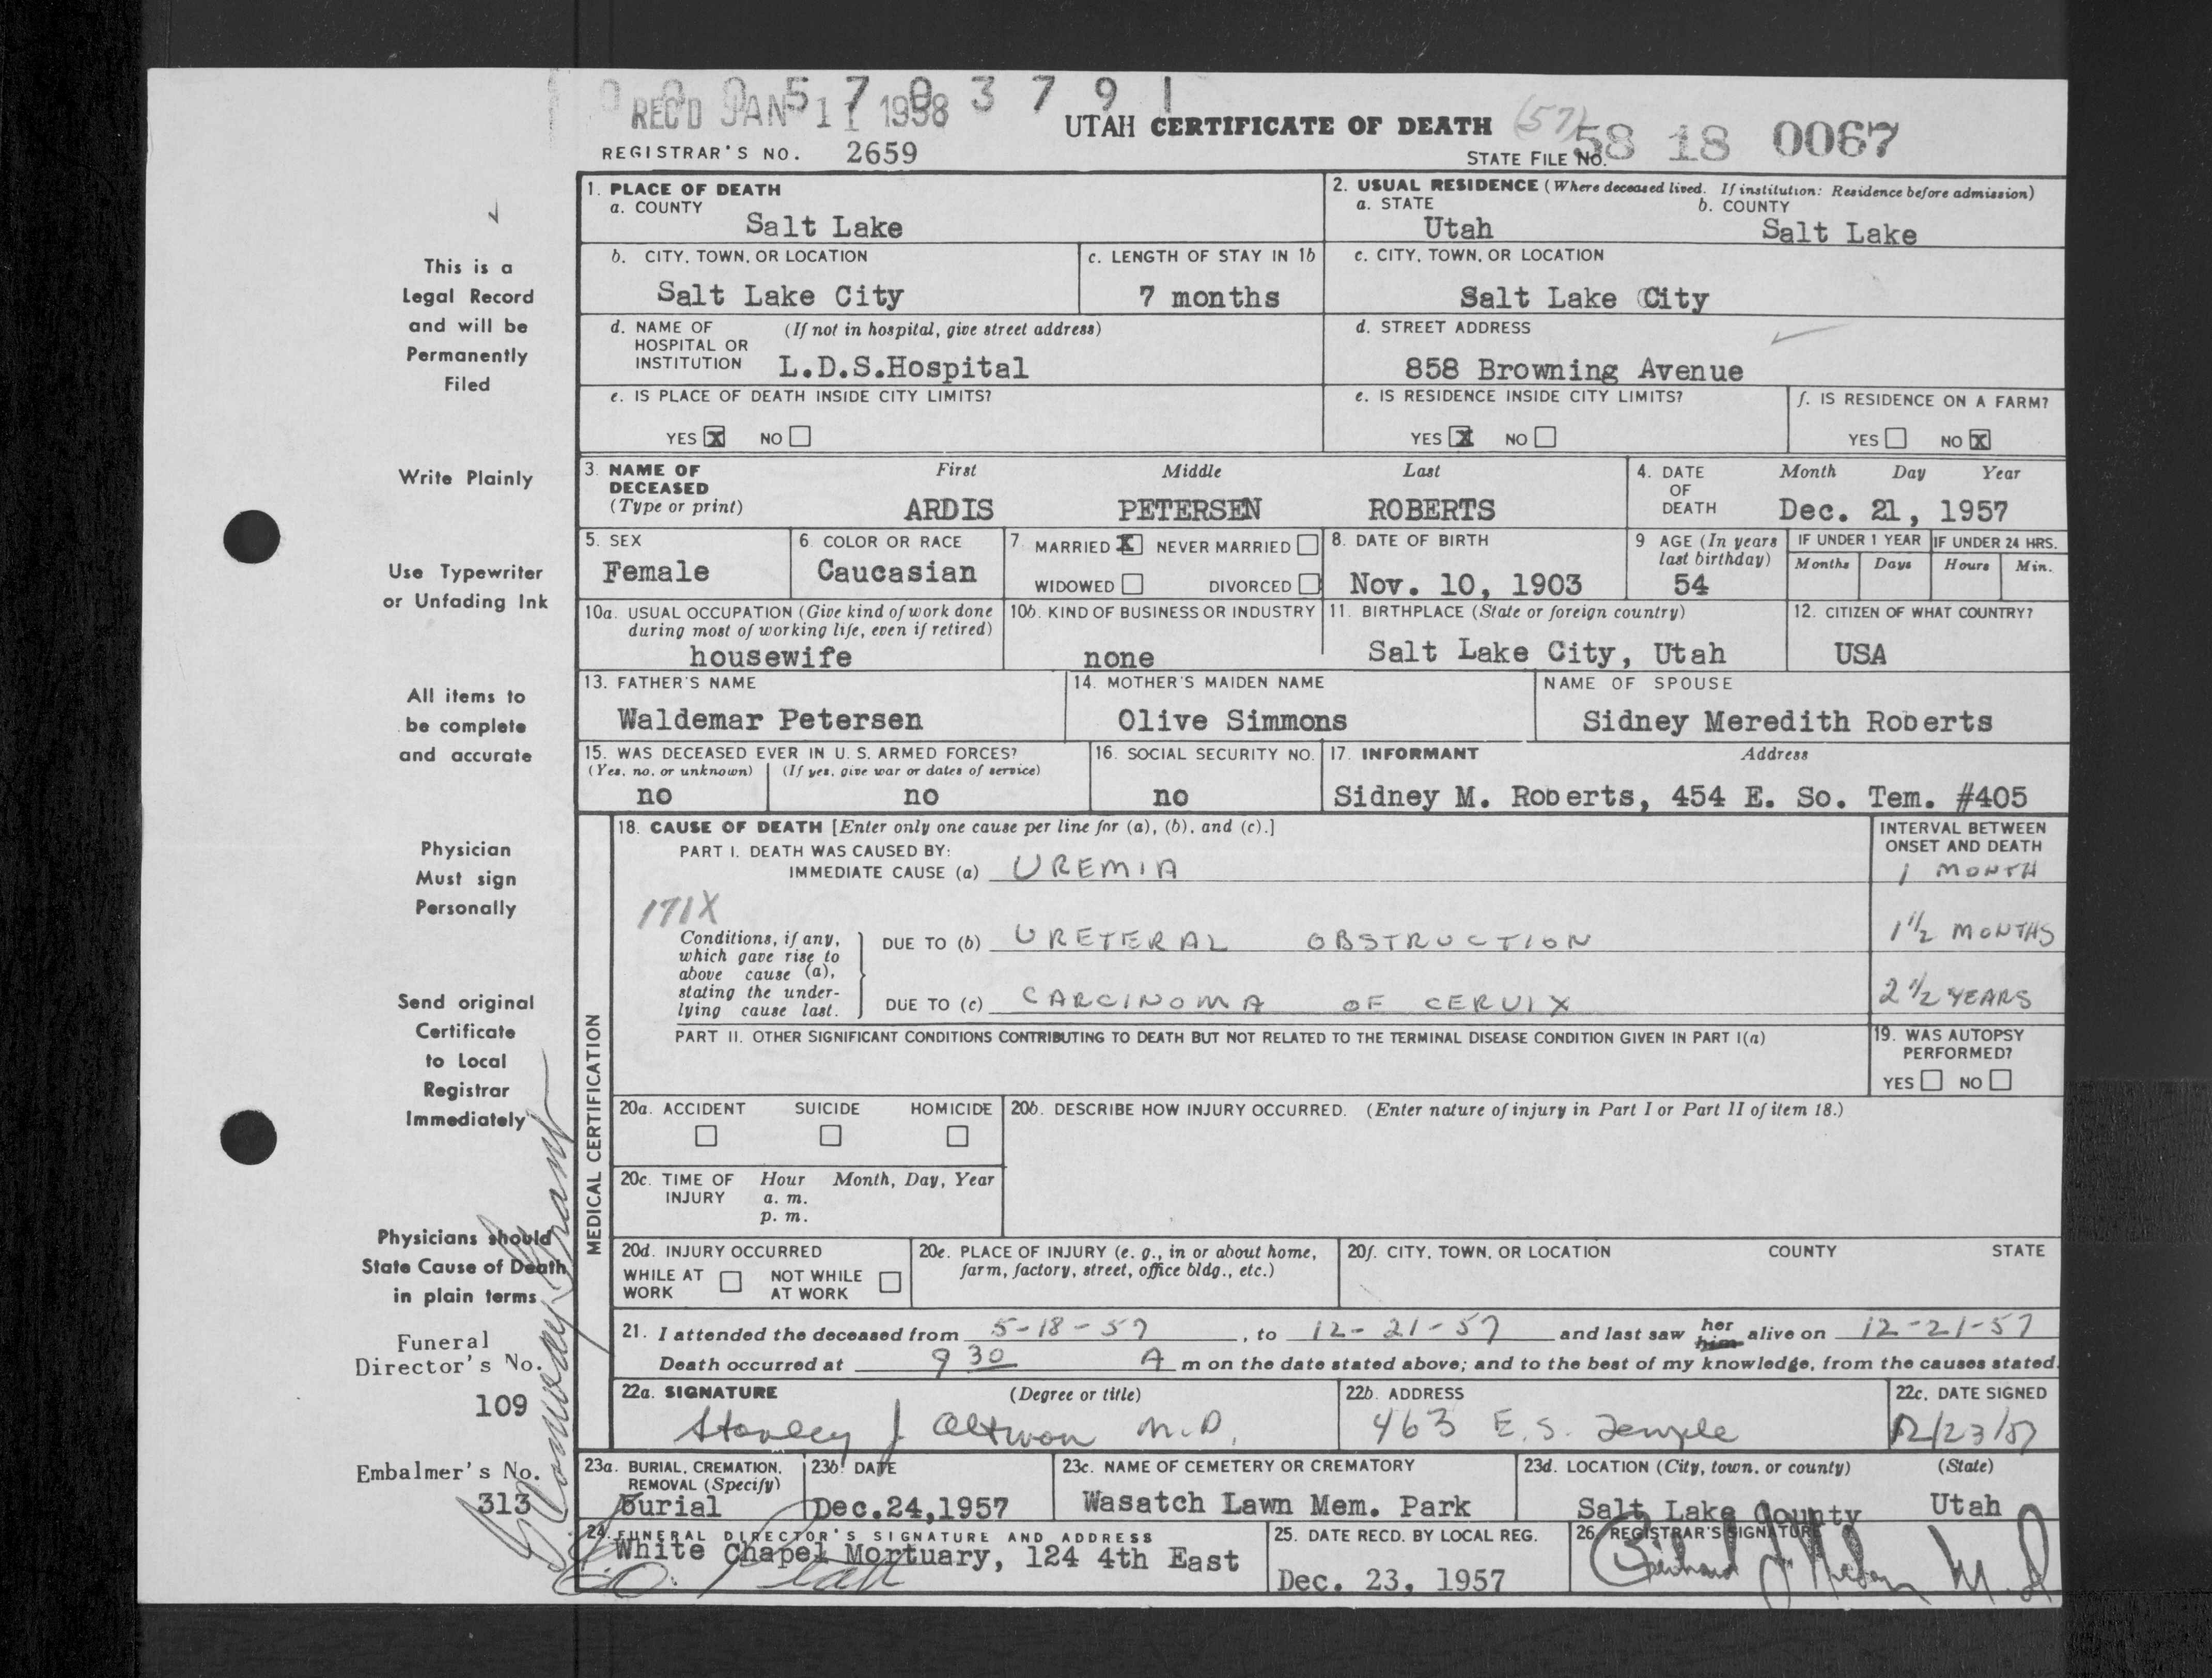 0 0 0 5 7 0 3 7 9 1
REC'D JAN 1 1958
UTAH CERTIFICATE OF DEATH (57)
REGISTRAR'S NO. 2659
STATE FILE NO. 58 18 0067
1. PLACE OF DEATH
a. COUNTY
Salt Lake
2. USUAL RESIDENCE (Where deceased lived. If institution: Residence before admission)
a. STATE b. COUNTY
Utah Salt Lake
b. CITY, TOWN, OR LOCATION
Salt Lake City
c. LENGTH OF STAY IN 1b
7 months
c. CITY, TOWN, OR LOCATION
Salt Lake City
d. NAME OF (If not in hospital, give street address)
HOSPITAL OR
INSTITUTION L.D.S.Hospital
d. STREET ADDRESS
858 Browning Avenue
e. IS PLACE OF DEATH INSIDE CITY LIMITS?
YES X NO
e. IS RESIDENCE INSIDE CITY LIMITS?
YES X NO
f. IS RESIDENCE ON A FARM?
YES NO X
3. NAME OF DECEASED (Type or print)
First Middle Last
ARDIS PETERSEN ROBERTS
4. DATE OF DEATH
Month Day Year
Dec. 21, 1957
5. SEX
Female
6. COLOR OR RACE
Caucasian
7. MARRIED X NEVER MARRIED
WIDOWED DIVORCED
8. DATE OF BIRTH
Nov. 10, 1903
9 AGE (In years
last birthday)
54
IF UNDER 1 YEAR IF UNDER 24 HRS.
Months Days Hours Min.
10a. USUAL OCCUPATION (Give kind of work done
during most of working life, even if retired)
housewife
10b. KIND OF BUSINESS OR INDUSTRY
none
11. BIRTHPLACE (State or foreign country)
Salt Lake City, Utah
12. CITIZEN OF WHAT COUNTRY?
USA
13. FATHER'S NAME
Waldemar Petersen
14. MOTHER'S MAIDEN NAME
Olive Simmons
NAME OF SPOUSE
Sidney Meredith Roberts
15. WAS DECEASED EVER IN U. S. ARMED FORCES?
(Yes, no, or unknown) (If yes, give war or dates of service)
no no
16. SOCIAL SECURITY NO.
no
17. INFORMANT Address
Sidney M. Roberts, 454 E. So. Tem. #405
MEDICAL CERTIFICATION
18. CAUSE OF DEATH [Enter only one cause per line for (a), (b), and (c).]
PART I. DEATH WAS CAUSED BY:
IMMEDIATE CAUSE (a) UREMIA
INTERVAL BETWEEN
ONSET AND DEATH
1 MONTH
171X
Conditions, if any,
which gave rise to
above cause (a),
stating the under-
lying cause last.
DUE TO (b) URETERAL OBSTRUCTION
1 1/2 MONTHS
DUE TO (c) CARCINOMA OF CERVIX
2 1/2 YEARS
PART II. OTHER SIGNIFICANT CONDITIONS CONTRIBUTING TO DEATH BUT NOT RELATED TO THE TERMINAL DISEASE CONDITION GIVEN IN PART I(a)
19. WAS AUTOPSY
PERFORMED?
YES NO
20a. ACCIDENT SUICIDE HOMICIDE
20b. DESCRIBE HOW INJURY OCCURRED. (Enter nature of injury in Part I or Part II of item 18.)
20c. TIME OF INJURY
Hour Month, Day, Year
a. m.
p. m.
20d. INJURY OCCURRED
WHILE AT WORK NOT WHILE AT WORK
20e. PLACE OF INJURY (e. g., in or about home,
farm, factory, street, office bldg., etc.)
20f. CITY, TOWN, OR LOCATION COUNTY STATE
21. I attended the deceased from 5-18-57, to 12-21-57 and last saw her him alive on 12-21-57
Death occurred at 9 30 A m on the date stated above; and to the best of my knowledge, from the causes stated.
22a. SIGNATURE (Degree or title)
Stanley J M.D.
22b. ADDRESS
463 E. S. Temple
22c. DATE SIGNED
12/23/57
23a. BURIAL, CREMATION,
REMOVAL (Specify)
burial
23b. DATE
Dec.24,1957
23c. NAME OF CEMETERY OR CREMATORY
Wasatch Lawn Mem. Park
23d. LOCATION (City, town, or county) (State)
Salt Lake County Utah
24. FUNERAL DIRECTOR'S SIGNATURE AND ADDRESS
White Chapel Mortuary, 124 4th East
25. DATE RECD. BY LOCAL REG.
Dec. 23, 1957
26. REGISTRAR'S SIGNATURE
This is a
Legal Record
and will be
Permanently
Filed
Write Plainly
Use Typewriter
or Unfading Ink
All items to
be complete
and accurate
Physician
Must sign
Personally
Send original
Certificate
to Local
Registrar
Immediately
Physicians should
State Cause of Death
in plain terms
Funeral
Director's No.
109
Embalmer's No.
313